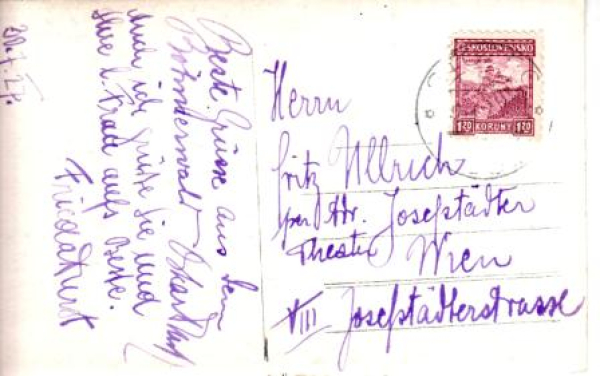 Beste Grüsse aus dem
Böhmerwald
Auch ich grüße Sie und
Ihre l. Frau aufs Beste.
Frieda
Herrn
Fritz Ullrich
per Adr. Josefstädter
Theater
Wien
VIII Josefstädterstrasse
ČESKOSLOVENSKO
1.20 KORUNY 1.20